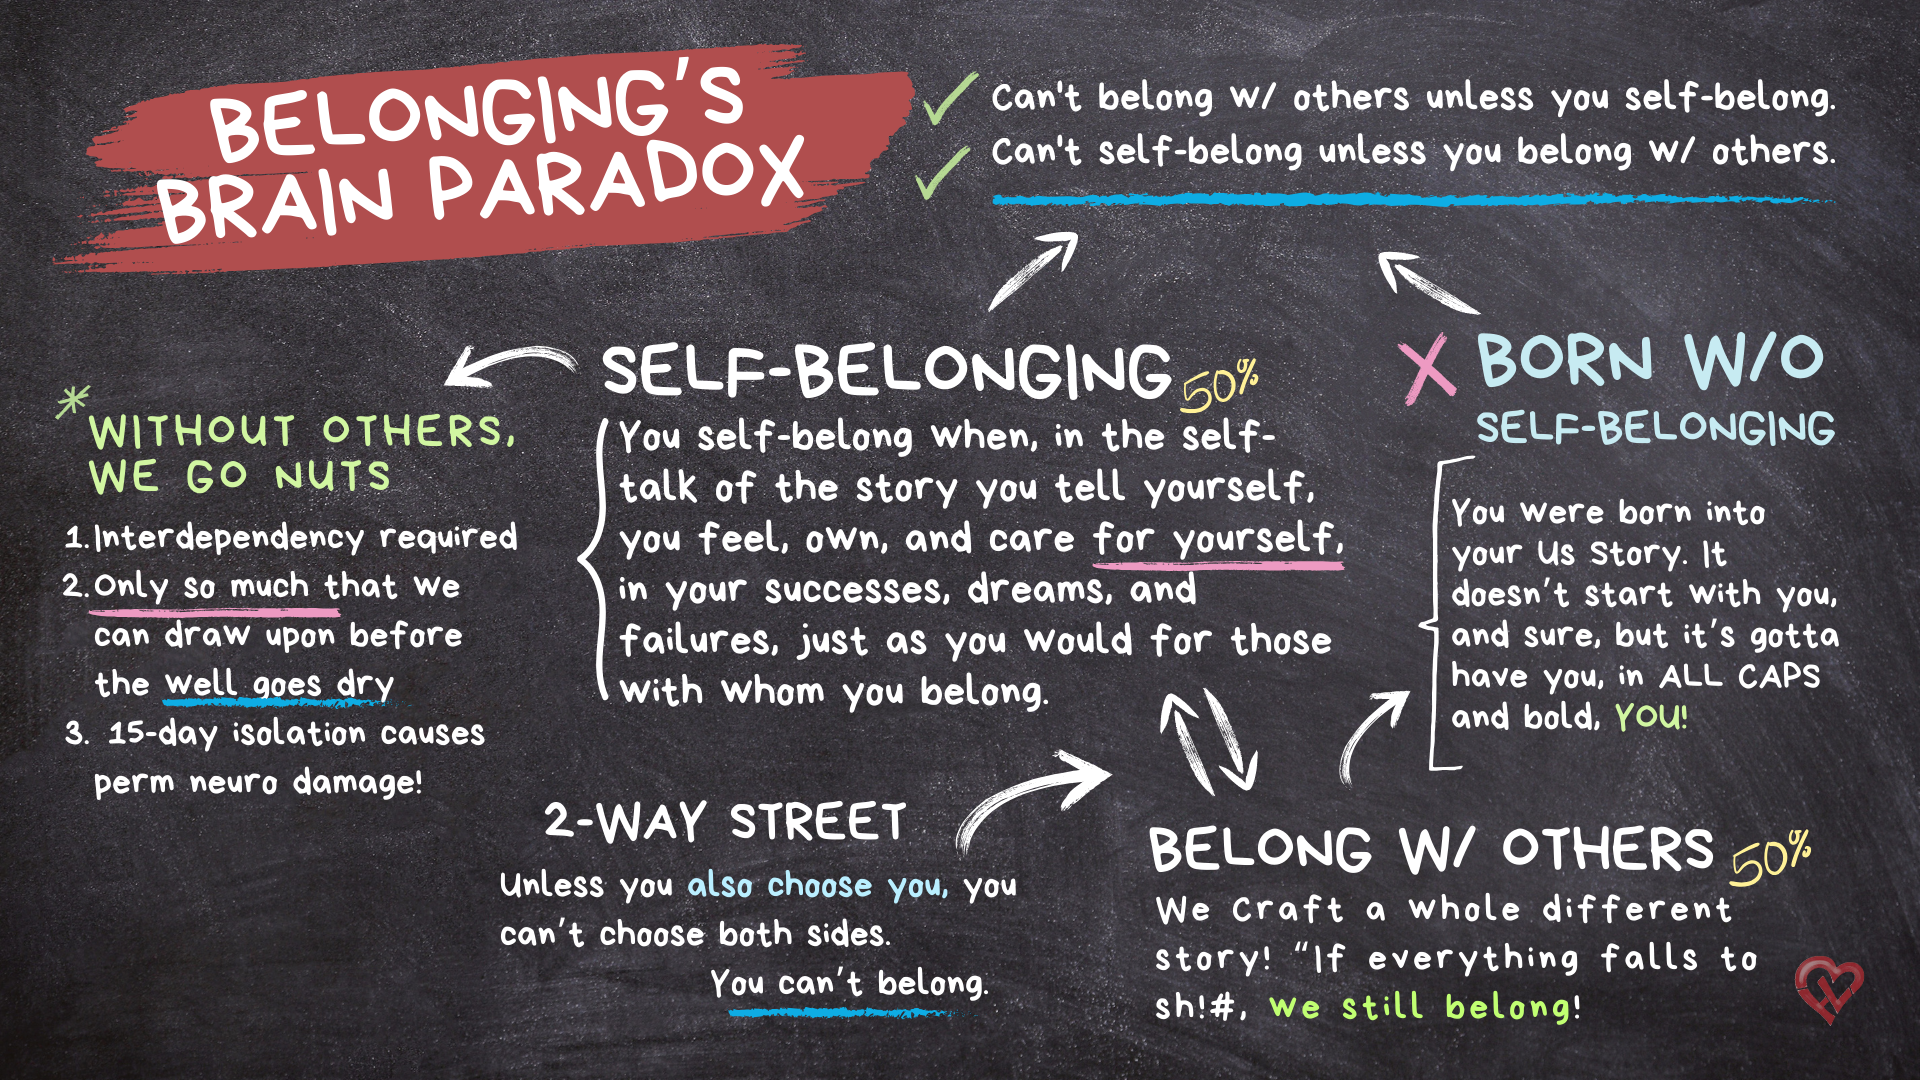 BELONGING'S
BRAIN PARADOX
Can't belong w/ others unless you self-belong.
Can't self-belong unless you belong w/ others.
SELF-BELONGING 50%
You self-belong when, in the self-
talk of the story you tell yourself,
you feel, own, and care for yourself,
in your successes, dreams, and
failures, just as you would for those
with whom you belong.
X BORN W/O
SELF-BELONGING
You were born into
your Us Story. It
doesn't start with you,
and sure, but it's gotta
have you, in ALL CAPS
and bold, YOU!
*WITHOUT OTHERS,
WE GO NUTS
1. Interdependency required
2. Only so much that we
can draw upon before
the well goes dry
3. 15-day isolation causes
perm neuro damage!
2-WAY STREET
Unless you also choose you, you
can't choose both sides.
You can't belong.
BELONG W/ OTHERS 50%
We Craft a whole different
story! "If everything falls to
sh!#, we still belong!